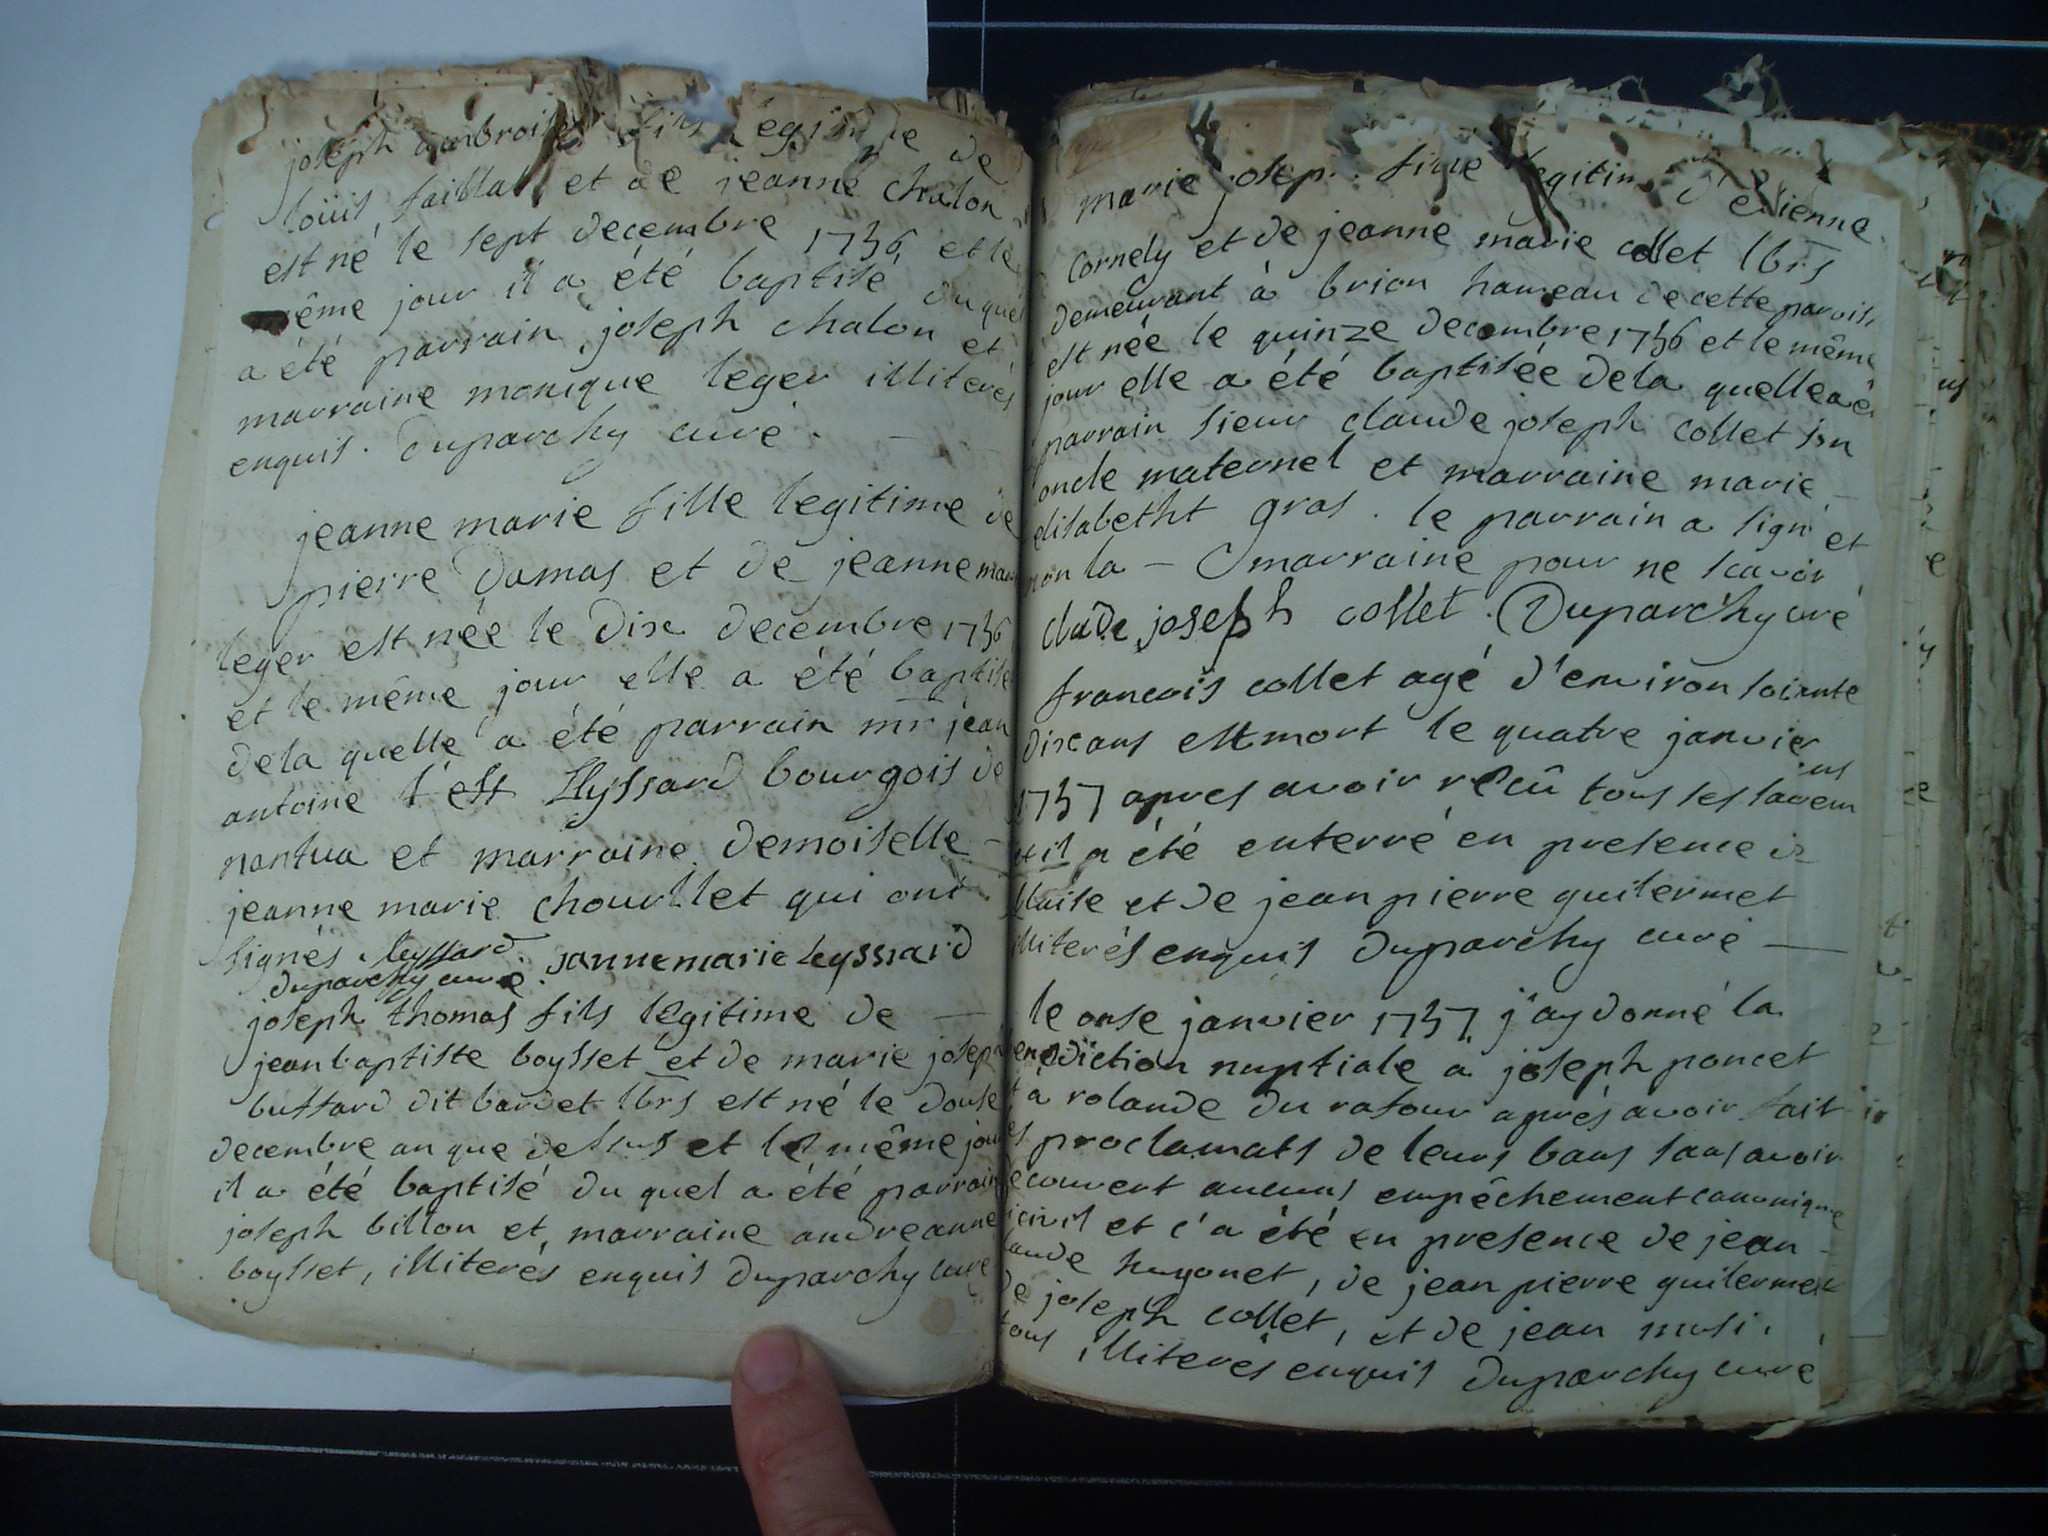 joseph ambroise fils legitime de
louis et de jeanne chalon
est né le sept decembre 1736 et le
même jour il a été baptisé du quel
a été parrain joseph chalon et
marraine monique leger illiterés
enquis. Duparchy curé.
jeanne marie fille legitime de
pierre Damas et de jeanne marie
leger est née le dix decembre 1736
et le même jour elle a été baptisée
de la quelle a été parrain mr jean
antoine Leyssard bourgois de
nantua et marraine demoiselle
jeanne marie qui ont
signés. leyssard. jannemarie Leyssard
duparchy curé.
joseph thomas fils legitime de
jean baptiste boysset et de marie joseph
buffard dit bardet lbrs est né le douse
decembre an que dessus et le même jour
il a été baptisé du quel a été parrain
joseph billon et marraine andreanne
boysset, illiterés enquis Duparchy curé
marie josep fille legitim d'etienne
Cornely et de jeanne marie collet lbrs
demeurant à brion hameau de cette paroisse
est née le quinze decembre 1736 et le même
jour elle a été baptisée de la quelle a é
parrain sieur claude joseph collet son
oncle maternel et marraine marie
elisabetht gras. le parrain a signé et
non la marraine pour ne scavoir
clade joseph collet. Duparchy curé
francois collet agé d'environ soixante
dix ans est mort le quatre janvier
1737 apres avoir recû tous ses sacrem
et il a été enterré en presence de
blaise et de jean pierre guilermet
illiterés enquis Duparchy curé
le onse janvier 1737 j'ay donné la
benediction nuptiale a joseph poncet
et à rolande du rafour aprés avoir fait
proclamats de leurs bans sans avoir
decouvert aucuns empêchement canonique
ni civil et c'a été en presence de jean
claude hugonet, de jean pierre guilermet
de joseph collet, et de jean musi,
tous illiterés enquis Duparchy curé